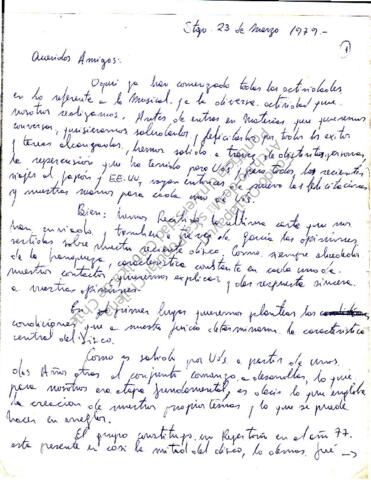 Stgo. 23 de Marzo 1979.-
1
Queridos Amigos:
Aqui ya han comenzado todas las actividades
en lo referente a lo Musical, ya la diversa actividad que
nosotros realizamos. Antes de entrar en Materias que queremos
conversar, quisieramos saludarlos y felicitarlos por todos los exitos
y tareas alcanzadas, hemos sabido a traves de personas,
la repercusión que ha tenido para Uds. y para todos los recientes
viajes al Japón y EE.UU, vayan entonces de nuevo las felicitaciones
y nuestras manos para cada uno de Uds.
Bien: hemos Recibido la ultima carta que nos
han enviado, y tambien a traves de García las opiniones
vertidas sobre nuestro reciente disco. Como siempre alrededor
de la franqueza, característica constante en cada uno de
nuestros contactos queremos explicar y dar respuesta sincera
a vuestras opiniones.
En primer lugar queremos plantear las
condiciones que a nuestro juicio determinaron la característica
central del Disco.
Como es sabido por Uds. a partir de unos
dos Años atras el conjunto comenzo a desarrollar lo que
para nosotros era etapa fundamental, es decir lo que engloba
la creacion de nuestros propios temas y lo que se puede
hacer en arreglos.
El grupo constituyo un Repertorio en el año 77.
esta presente en casi la mitad del disco, lo demas fué →